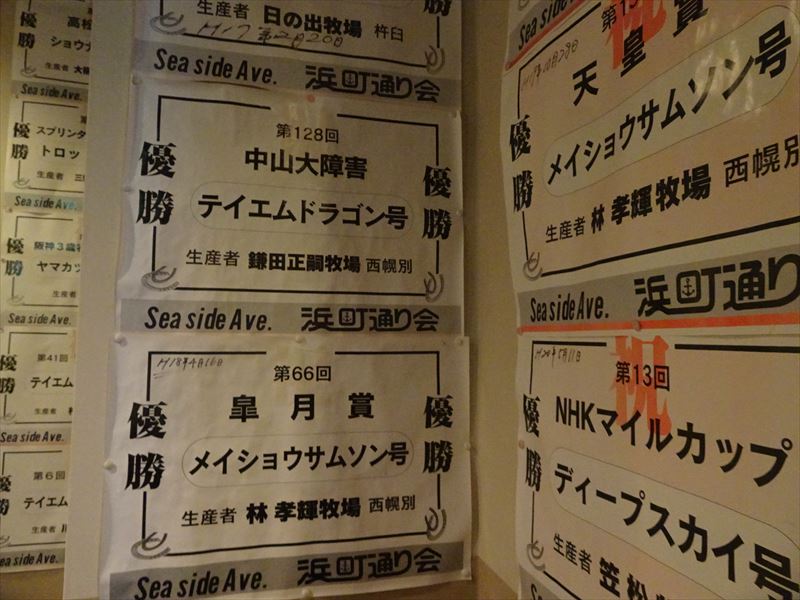 高松
優勝
ショウナ
生産者
Sea side Ave.
優勝
スプリンタ
トロッ
生産者
Sea side Ave.
優勝
阪神3歳
ヤマカツ
生産者
Sea side Ave.
優
第41回
テイエム
生産者
Sea side Ave.
優
第6回
テイエム
生産者
Sea side Ave.
勝
生産者 日の出牧場 杵臼
H17 第2月20日
Sea side Ave. 浜町通り会
第128回
優勝 中山大障害 優勝
テイエムドラゴン号
生産者 鎌田正嗣牧場 西幌別
Sea side Ave. 浜町通り会
H18年4月16日
第66回
優勝 皐月賞 優勝
メイショウサムソン号
生産者 林 孝輝牧場 西幌別
Sea side Ave. 浜町通り会
Sea side
祝
天皇賞
優勝
メイショウサムソン号
生産者 林 孝輝牧場 西幌別
Sea side Ave. 浜町通り
H20年5月11日
祝
第13回
優勝
NHKマイルカップ
ディープスカイ号
生産者 笠松